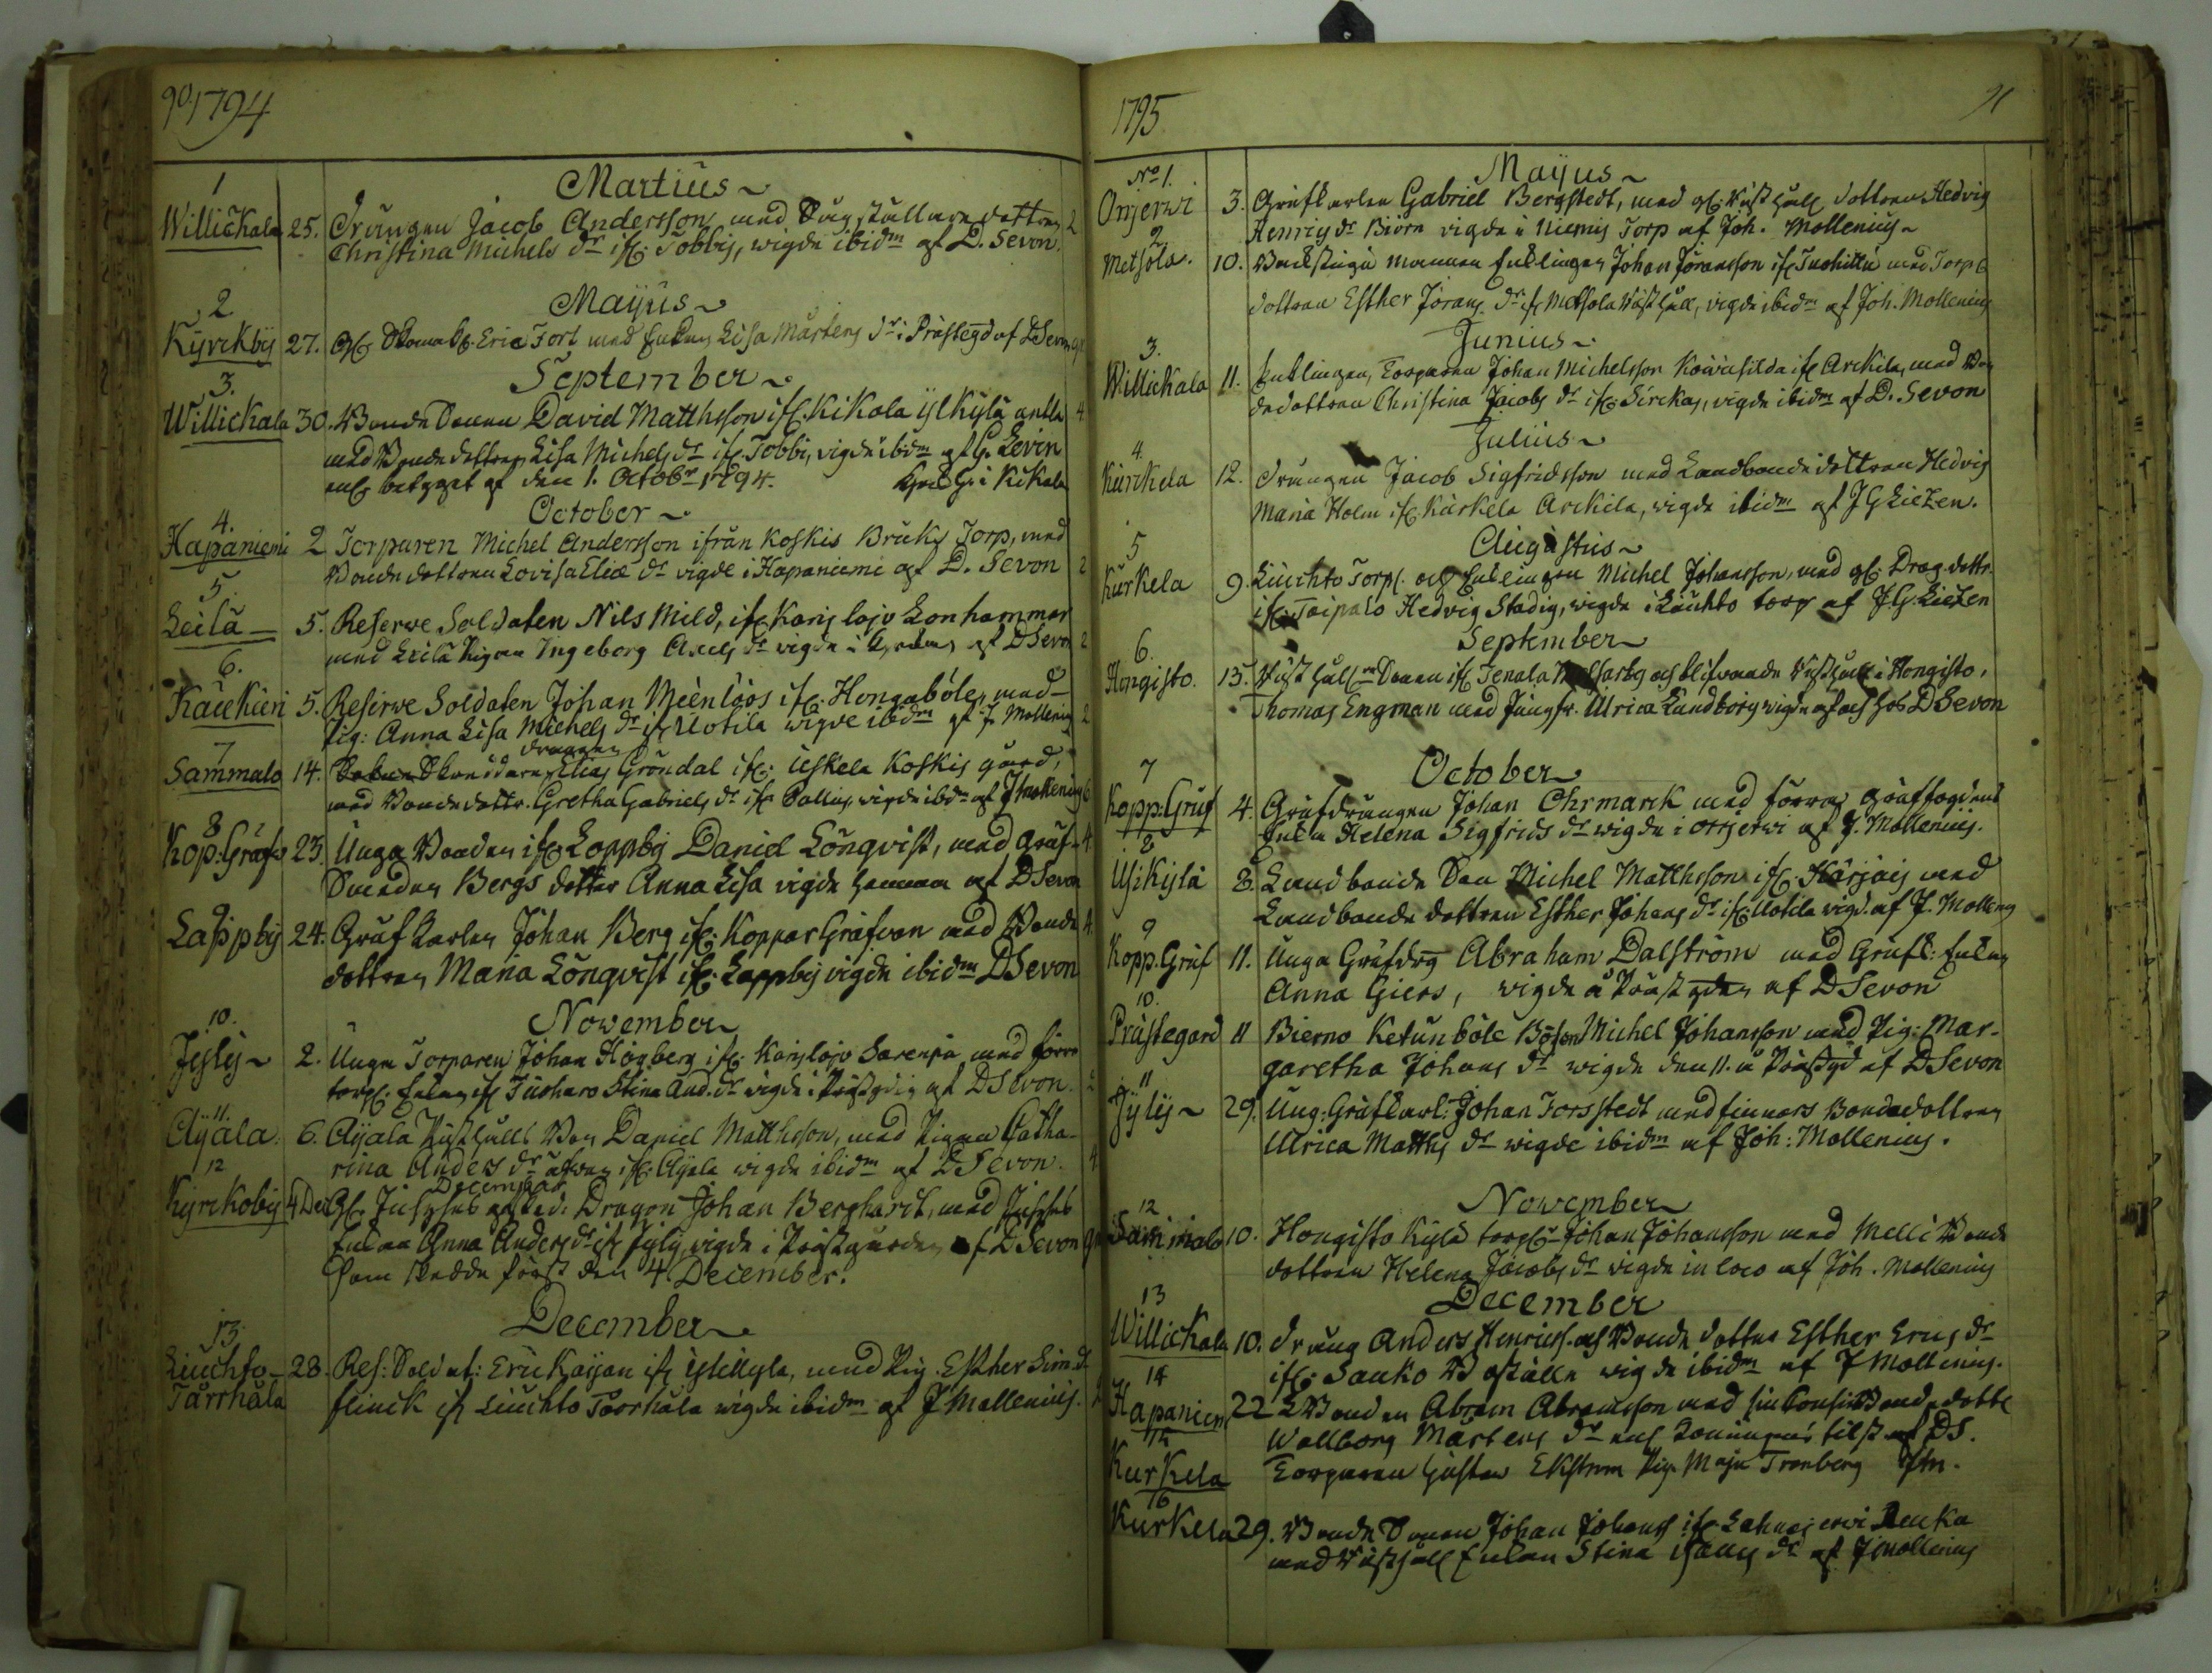 90. 1794
Martius
1
Willickala 25. Drängen Jacob Andersson, med dottren 2
Christina Michels dr ifr. Tobbis, wigde ibidm af D. Sevon.
Mayus
2
Kyrckby 27. Eric Fort med Enkan Lisa Mårtens dr i Prästegd af D Sevon
September
3.
Willickala 30. Bonde Sonen David Matthsson ifr. Kikala ylkylä
med Bonde dottren Lisa Michels dr ifr. Tobbi, vigde ibidm af G. Levin
af den 1. Octobr 1794. i Kikala
October
4.
Hapaniemi 2 Torparen Michel Andersson ifrån Koskis Bruks Torp, med
Bonde dottren Lovisa Eliæ dr vigde i Hapaniemi af D. Sevon 2
5.
Leilä 5. Reserwe Soldaten Nils Mild, ifr Karis lojo Lonhammar
med Leilä Pigan Ingeborg Axels dr vigde af D Sevon 2
6.
Kaukuri 5. Reserwe Soldaten Johan Meenlöös ifr. Hongaböle, med
Pig: Anna Lisa Michels dr ifr Uotila wigde ibidm af J. Mollenius 2
7 drängen
Sammalo 14. Elias Gröndal ifr. Uskela Koskis gård,
med Bonde dottr. Gretha Gabriels dr ifr Pallius, wigde ibidm af J Mollenius 6
8
Kop: Grufv 23. Unga Bonden ifr Loppby Daniel Lönqvist, med Gruf 4.
Smeden Bergs dotter Anna Lisa vigde hemma af D Sevon
9
Lappby 24. Gruf Karlen Johan Berg ifr. Koppar Grufvan med Bonde 4.
dottren Maria Lönqvist ifr. Lappby vigde ibidm D Sevon
10.
November
Jyly 2. Unga Torparen Johan Högberg ifr. Karislojo Sarenpä med förre
torp. Enkan ifr Tuoharo Stina And. dr vigde i Prästgdn af D Sevon. 2
11.
Ayala. 6. Ayala Rusthålls Bon Daniel Matthsson, med Pigan Catha-
rina Anders dr ifr. Ayala wigde ibidm af D Sevon. 4
12 December
Kyrckoby 4 Dec Dragon Johan Berghardt, med
Enkan Anna Anders dr ifr Jyly, vigde i Prästgården af D Sevon
som skedde först den 4 December.
December
13.
Liuchto- 28. Res: Soldat: Eric Kajan ifr ylikyla, med Pig. Esther Sim. d
Tårrhåla flinck ifr Liuchto Torrhåla wigde ibidm af J Mollenius.
1795. 91
Mayus
No 1.
Orijerwi 3. Grufkarlen Gabriel Bergstedt, med gl. Rusthåll dottren Hedvig
Henrics dr Biörn vigde i Niemis Torp af Joh. Mollenius
2
Metsola. 10. Backstugu mannen Enklingen Johan Jöransson ifr Tuohittu med Torp
dottren Esther Jörans dr ifr Metsola Rusthåll, vigde ibidm af Joh. Mollenius
Junius
3.
Willickala 11. Enklingen, Torparen Johan Michelsson Kowasilda ifr Arckila, med Bon
dedottren Christina Jacobs dr ifr. Sirckas, vigde ibidm af D. Sevon
Julius
4.
Kurckela 12. Drängen Jacob Sigfridsson med Landbonde dottren Hedvig
Maria Holm ifr. Kurkela Arckila, wigde ibidm af J G Liezen.
Augustus
5
Kurkela 9. Liuchto Torp. och Enklingen Michel Johansson, med gl. Drag. dottr.
ifr. Taipalo Hedvig Stadig, wigde i Liuchto torp af J.G. Liezen
September
6.
Hongisto. 13. Rusthålls Sonen ifr Tenala och blifvande Rusthåll i Hongisto,
Thomas Engman med Jungfr. Ulrica Lundborg vigde af och hos D Sevon
October
7
Kopp. Gruf 4. Grufdrängen Johan Ohrmarck med förra Gruffogdens
Enka Helena Sigfrids dr wigde i Orijerwi af J. Mollenius.
8
Ylikylä 8. Landbonde Son Michel Matthsson ifr. Härjais med
Landbonde dottren Esther Johans dr ifr. Uotila wigd. af J. Mollenius
9
Kopp. Gruf 11. Unga Grufdrg Abraham Dalström med Grufk: Enkan
Anna Giers, wigde å Prästgården af D Sevon
10.
Prästegård 11 Bierno Ketunböle Boson Michel Johansson med Pig: Mar-
garetha Johans dr wigde den 11. å Prästgd af D Sevon
11
Jyly 29. Ung: Grufkarl: Johan Forsstedt med finnars Bondedottren
Ulrica Matths dr wigde ibidm af Joh: Mollenius.
November
12
Sammalo 10. Hongisto Kylä torp. Johan Johansson med Melli Bonde
dottren Helena Jacobs dr wigde in loco af Joh. Mollenius
December
13
Willickala 10. dräng Anders Henricss. och Bonde dotter Esther Erics dr
ifr. Sauko wigde ibidm af J Mollenius.
14
Hapaniemi 22 Bonden Abram Abramsson med sin Cousin Bonde dotte
Wallborg Mårtens dr af DS.
15
Kurkela Torparen Gustav Ekström Pig. Maja Tronberg
16
Kurkela 29. Bonde Sonen Johan Johanss ifr. Lahnajerwi Leuka
med Rusthåll Enkan Stina Isaacs dr af J Mollenius